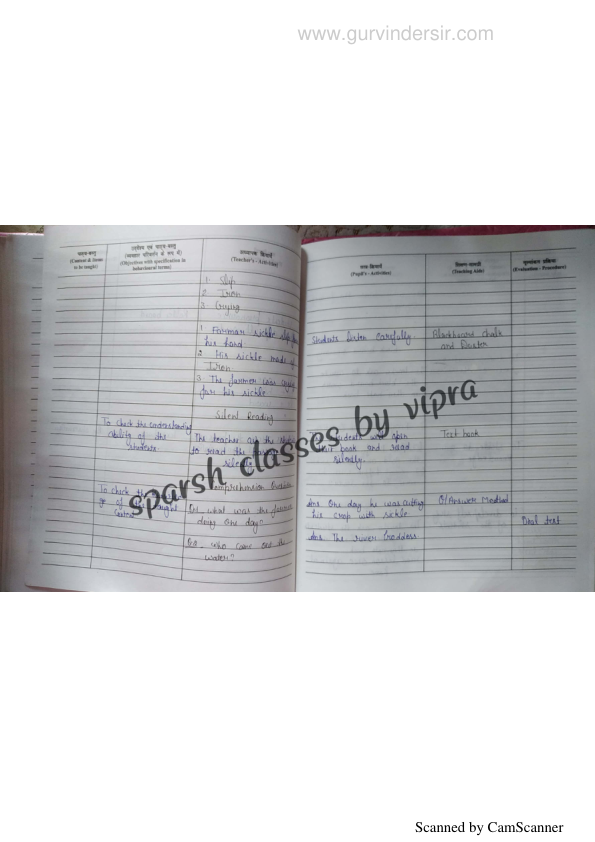 www.gurvindersir.com
पाठ्य-वस्तु
(Content & Items
to be taught)
उद्देश्य एवं पाठ्य-वस्तु
(व्यवहार परिवर्तन के रूप में)
(Objectives with specification in
behavioural terms)
अध्यापक क्रियाएँ
(Teacher's - Activities)
1. Slip
2. Iron
3. Crying
1. Farmar sickle slip
his hand
2. His sickle made of
Iron
3. The farmer was crying
for his sickle
Silent Reading
To check the understanding
ability of the
students.
The teacher ask the
to read the
To check the
of the taught
Comprehension
Q1. what was the farmer
doing one day?
Q2. who came out the
water?
छात्र-क्रियाएँ
(Pupil's - Activities)
शिक्षण-सामग्री
(Teaching Aids)
मूल्यांकन प्रक्रिया
(Evaluation - Procedure)
Students listen carefully.
Blackboard chalk
and Duster
students will open
book and read
silently.
Text book
Ans One day he was cutting
his crop with sickle
Q/Answers Method
Oral test
Ans The river Goddess.
sparsh classes by vipra
Scanned by CamScanner